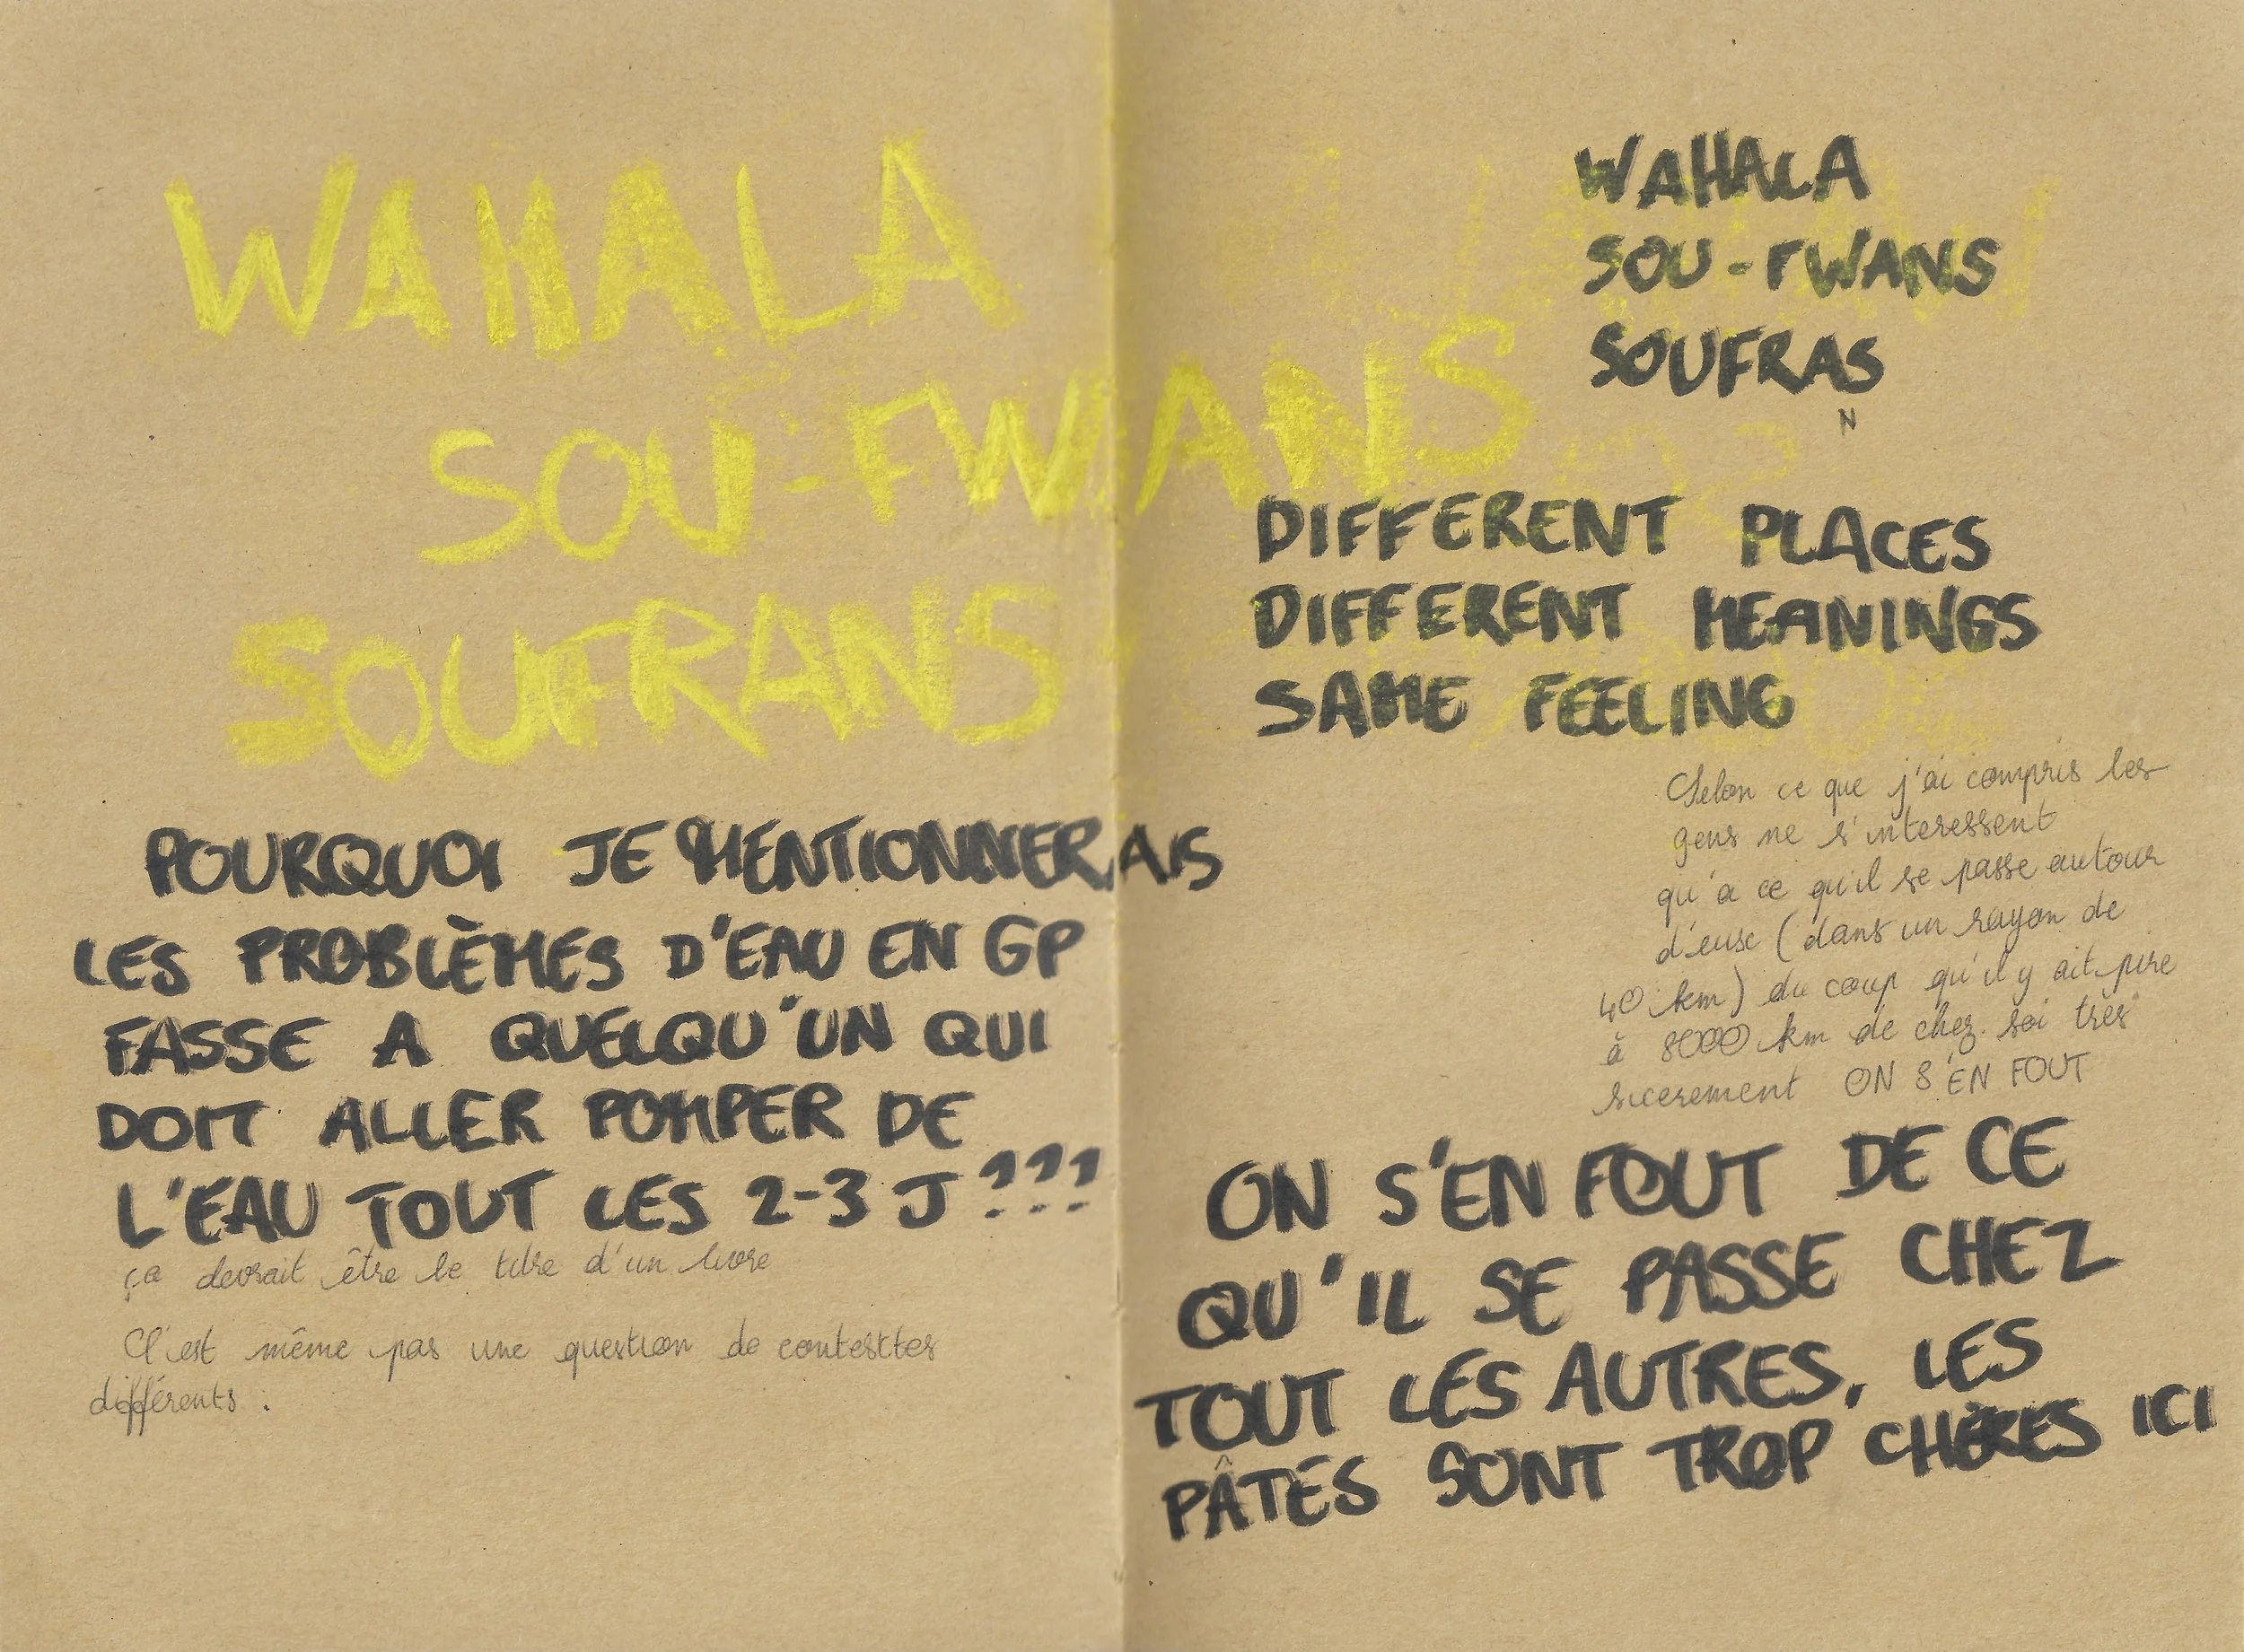 WAHALA
SOU-FWANS
SOUFRANS
POURQUOI JE MENTIONNERAIS
LES PROBLÈMES D'EAU EN GP
FASSE A QUELQU'UN QUI
DOIT ALLER POMPER DE
L'EAU TOUT LES 2-3 J ???
ça devrait être le titre d'un livre
C'est même pas une question de contesktes
différents :
WAHALA
SOU-FWANS
SOUFRAS
N
DIFFERENT PLACES
DIFFERENT MEANINGS
SAME FEELING
Selon ce que j'ai compris les
gens ne s'interessent
qu'a ce qu'il se passe autour
d'eux (dans un rayon de
40 km) du coup qu'il y ait pire
à 8000 km de chez soi très
sicerement ON S'EN FOUT
ON S'EN FOUT DE CE
QU'IL SE PASSE CHEZ
TOUT LES AUTRES, LES
PÂTES SONT TROP CHÈRES ICI